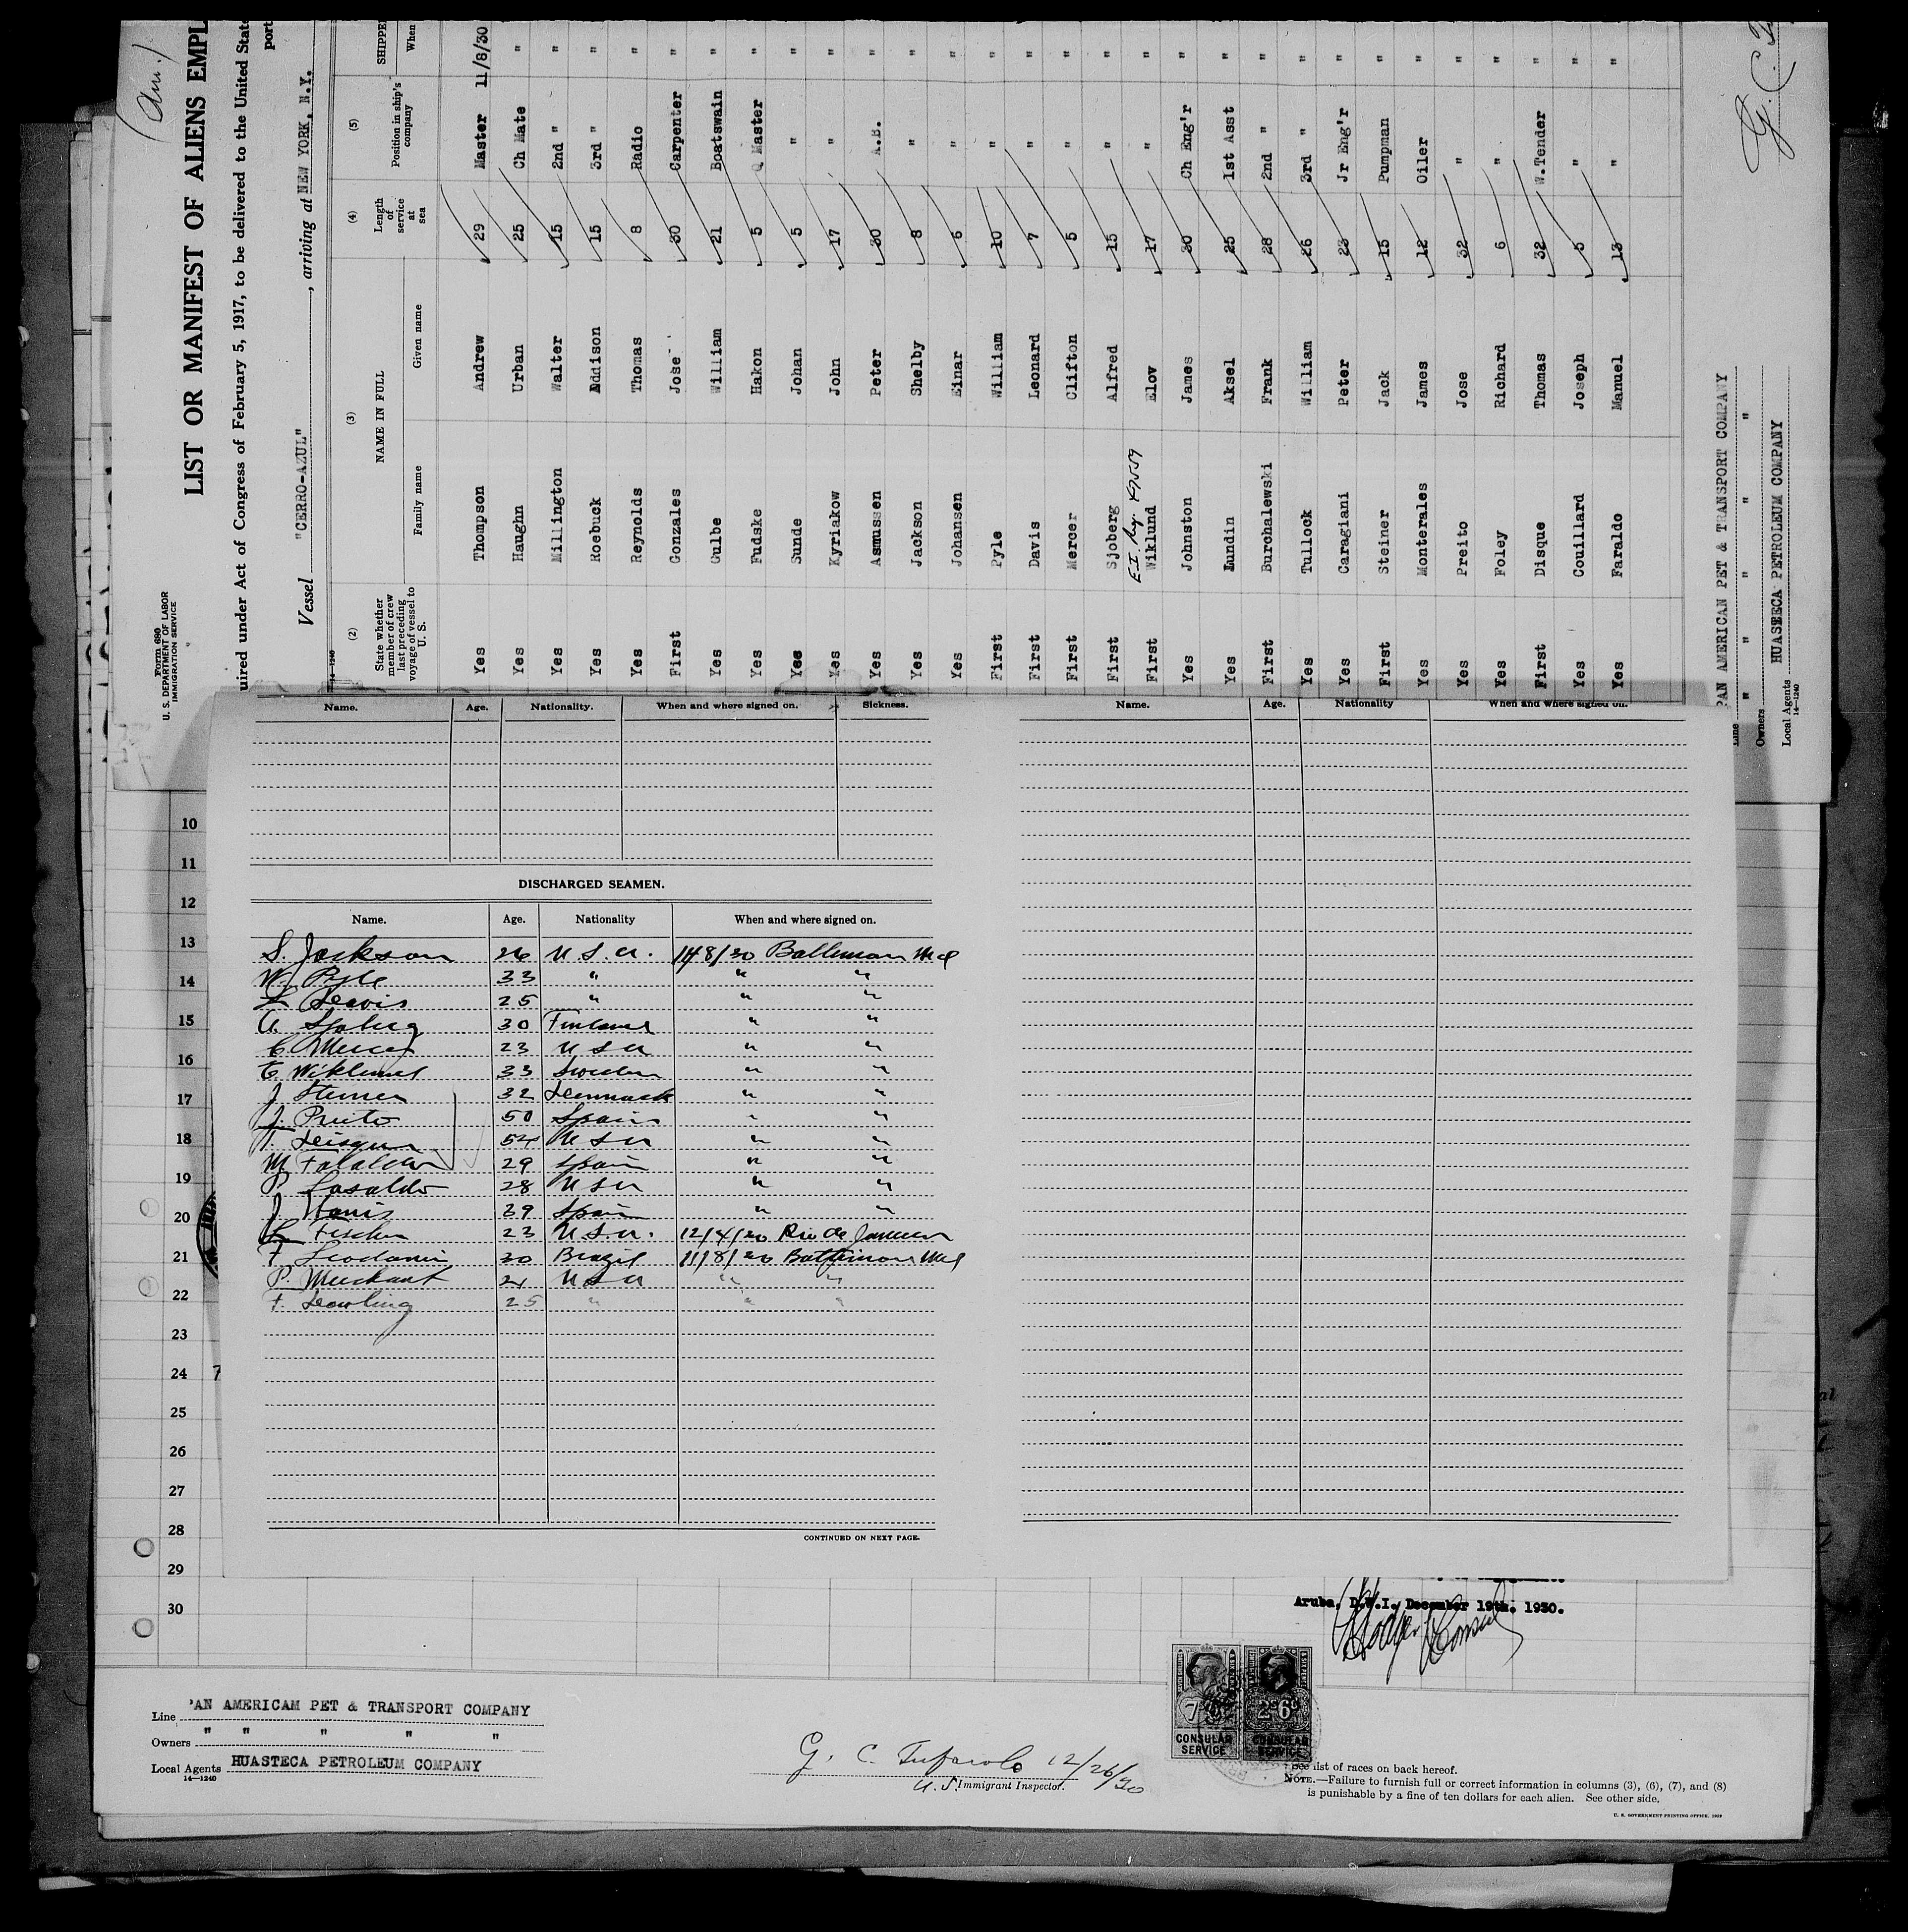 (Am.)
LIST OR MANIFEST OF ALIENS EMPL
uired under Act of Congress of February 5, 1917, to be delivered to the United State
port
Form 680
U. S. DEPARTMENT OF LABOR
IMMIGRATION SERVICE
Vessel "CERRO-AZUL", arriving at NEW YORK, N.Y.
14-1240
(2) (3) (4) (5)
State whether member of crew last preceding voyage of vessel to U. S. NAME IN FULL Length of service at sea Position in ship's company SHIPPE
Family name Given name When
Yes Thompson Andrew 29 Master 11/8/30
Yes Haughn Urban 25 Ch Mate "
Yes Millington Walter 15 2nd " "
Yes Roebuck Addison 15 3rd " "
Yes Reynolds Thomas 8 Radio "
First Gonzales Jose 30 Carpenter "
Yes Gulbe William 21 Boatswain "
Yes Fudske Hakon 5 Q Master "
Yes Sunde Johan 5 " "
Yes Kyriakow John 17 " "
Yes Asmussen Peter 30 A.B. "
Yes Jackson Shelby 8 " "
Yes Johansen Einar 6 " "
First Pyle William 10 " "
First Davis Leonard 7 " "
First Mercer Clifton 5 " "
First Sjoberg Alfred 15 " "
E.I. Reg. 47559
First Wiklund Elov 17 " "
Yes Johnston James 30 Ch Eng'r "
Yes Lundin Aksel 25 1st Asst "
First Burchalewski Frank 28 2nd " "
Yes Tullock William 26 3rd " "
Yes Caragiani Peter 23 Jr Eng'r "
First Steiner Jack 15 Pumpman "
Yes Monterales James 12 Oiler "
Yes Preito Jose 32 " "
Yes Foley Richard 6 " "
First Disque Thomas 32 W.Tender "
Yes Couillard Joseph 5 " "
Yes Faraldo Manuel 13 " "
Line PAN AMERICAN PET & TRANSPORT COMPANY
Owners " " " " "
Local Agents HUASTECA PETROLEUM COMPANY
14-1240
G. C.
Name. Age. Nationality. When and where signed on. Sickness.
Name. Age. Nationality When and where signed on.
DISCHARGED SEAMEN.
Name. Age. Nationality When and where signed on.
S. Jackson 26 U.S.A. 11/8/30 Baltimore Md
W. Pyle 33 " " "
L. Davis 25 " " "
A. Sjoberg 30 Finland " "
C. Mercer 23 U S A " "
E. Wiklund 33 Sweden " "
J. Steiner 32 Denmark " "
J. Prieto 50 Spain " "
T. Disque 54 U S A " "
M. Faraldo 29 Spain " "
P. 28 U S A " "
J. 39 Spain " "
L. Fischer 23 U.S.A. 12/4/30 Rio de Janeiro
F. 30 Brazil 11/8/30 Baltimore Md
P. Merchant 21 U S A " "
F. Dowling 25 " " "
CONTINUED ON NEXT PAGE.
10
11
12
13
14
15
16
17
18
19
20
21
22
23
24 7
25
26
27
28
29
30
Aruba, D.W.I. December 19th. 1930.
Consul
7 6
CONSULAR SERVICE
2s 6d
CONSULAR SERVICE
Line PAN AMERICAM PET & TRANSPORT COMPANY
Owners " " " " "
Local Agents HUASTECA PETROLEUM COMPANY
14-1240
G. C. Tufarolo 12/26/30
U.S. Immigrant Inspector.
See list of races on back hereof.
NOTE.—Failure to furnish full or correct information in columns (3), (6), (7), and (8)
is punishable by a fine of ten dollars for each alien. See other side.
U. S. GOVERNMENT PRINTING OFFICE, 1929